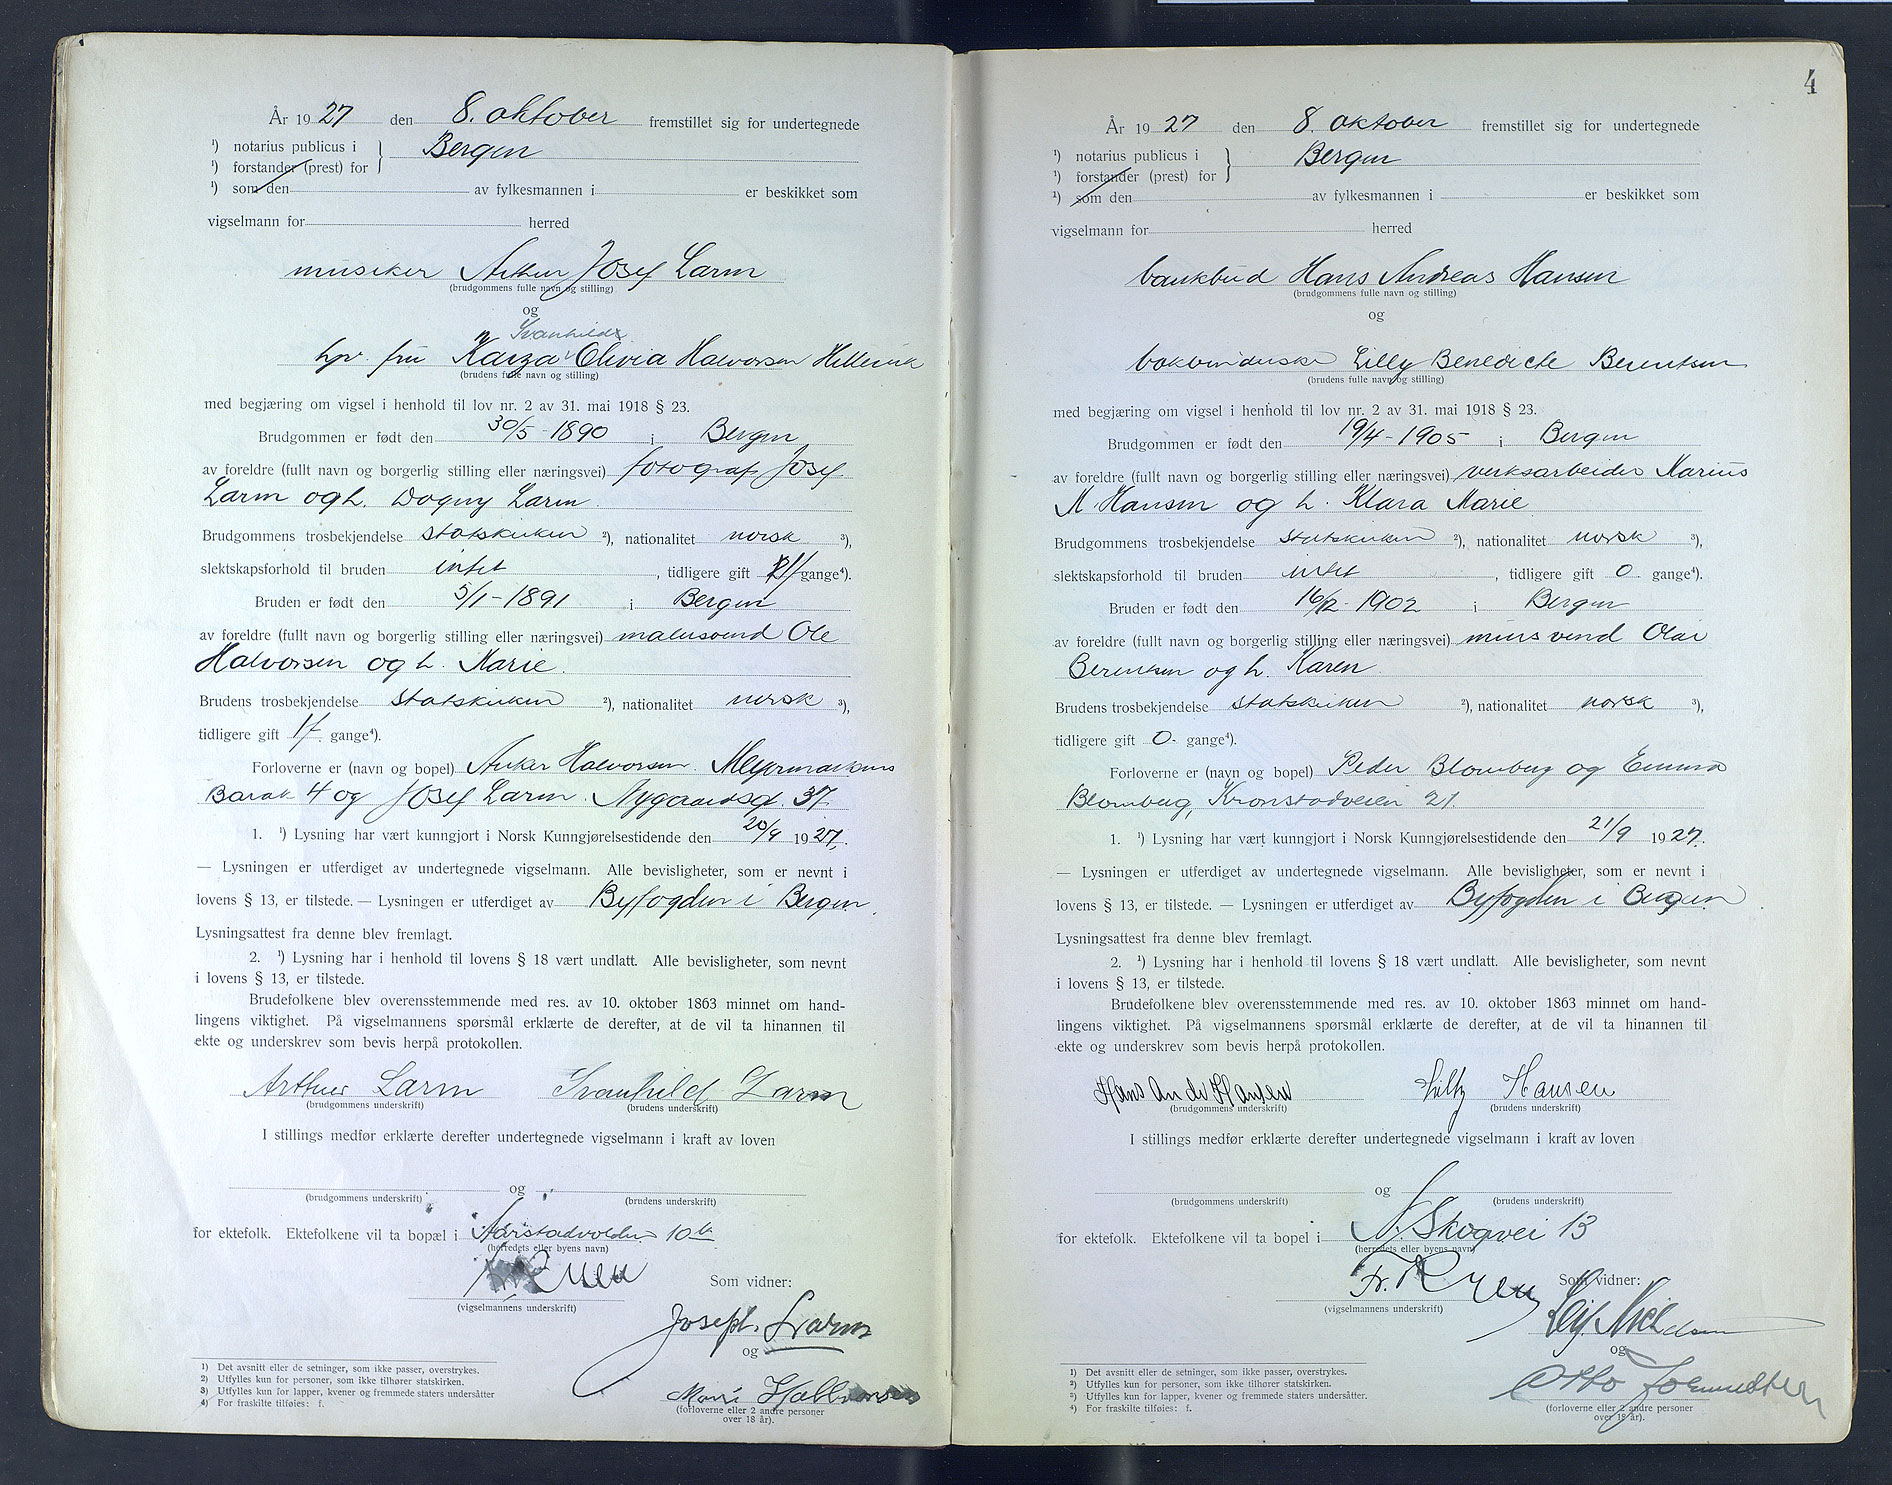 År 1927 den 8. oktober fremstillet sig for undertegnede
¹) notarius publicus i } Bergen
¹) forstander (prest) for
¹) som den av fylkesmannen i er beskikket som
vigselmann for herred
musiker Arthur Josef Larm
(brudgommens fulle navn og stilling)
og
Svanhild
fru Olivia Halvorsen
(brudens fulle navn og stilling)
med begjæring om vigsel i henhold til lov nr. 2 av 31. mai 1918 § 23.
Brudgommen er født den 30/5-1890 i Bergen
av foreldre (fullt navn og borgerlig stilling eller næringsvei) fotograf Josef
Larm og h. Dagny Larm
Brudgommens trosbekjendelse statskirken ²), nationalitet norsk ³),
slektskapsforhold til bruden intet, tidligere gift 1f gange⁴).
Bruden er født den 5/1-1891 i Bergen
av foreldre (fullt navn og borgerlig stilling eller næringsvei) malersvend Ole
Halvorsen og h. Marie.
Brudens trosbekjendelse statskirken ²), nationalitet norsk ³),
tidligere gift 1f. gange⁴).
Forloverne er (navn og bopel) Anker Halvorsen. Meyermarkens
Barak 4 og Josef Larm. Nygaardsgt. 37
1. ¹) Lysning har vært kunngjort i Norsk Kunngjørelsestidende den 20/9 1927.
— Lysningen er utferdiget av undertegnede vigselmann. Alle bevisligheter, som er nevnt i
lovens § 13, er tilstede. — Lysningen er utferdiget av Byfogden i Bergen.
Lysningsattest fra denne blev fremlagt.
2. ¹) Lysning har i henhold til lovens § 18 vært undlatt. Alle bevisligheter, som nevnt
i lovens § 13, er tilstede.
Brudefolkene blev overensstemmende med res. av 10. oktober 1863 minnet om hand-
lingens viktighet. På vigselmannens spørsmål erklærte de derefter, at de vil ta hinannen til
ekte og underskrev som bevis herpå protokollen.
Arthur Larm Svanhild Larm
(brudgommens underskrift) (brudens underskrift)
I stillings medfør erklærte derefter undertegnede vigselmann i kraft av loven
og
(brudgommens underskrift) (brudens underskrift)
for ektefolk. Ektefolkene vil ta bopæl i Aarstadvolden 10
(herredets eller byens navn)
Som vidner:
(vigselmannens underskrift)
Joseph. Larm
og
Marie Halvorsen
(forloverne eller 2 andre personer
over 18 år).
1) Det avsnitt eller de setninger, som ikke passer, overstrykes.
2) Utfylles kun for personer, som ikke tilhører statskirken.
3) Utfylles kun for lapper, kvener og fremmede staters undersåtter
4) For fraskilte tilføies: f.
4
År 1927 den 8. oktober fremstillet sig for undertegnede
¹) notarius publicus i } Bergen
¹) forstander (prest) for
¹) som den av fylkesmannen i er beskikket som
vigselmann for herred
bankbud Hans Andreas Hansen
(brudgommens fulle navn og stilling)
og
bokbinderske Lilly Benedicte Berentsen
(brudens fulle navn og stilling)
med begjæring om vigsel i henhold til lov nr. 2 av 31. mai 1918 § 23.
Brudgommen er født den 19/4-1905 i Bergen
av foreldre (fullt navn og borgerlig stilling eller næringsvei) verksarbeider Marius
M. Hansen og h. Klara Marie
Brudgommens trosbekjendelse statskirken ²), nationalitet norsk ³),
slektskapsforhold til bruden intet, tidligere gift 0 gange⁴).
Bruden er født den 16/12-1902 i Bergen
av foreldre (fullt navn og borgerlig stilling eller næringsvei) mursvend Olai
Berentsen og h. Karen
Brudens trosbekjendelse statskirken ²), nationalitet norsk ³),
tidligere gift 0. gange⁴).
Forloverne er (navn og bopel) Peder Blomberg og Emma
Blomberg, Kronstadveien 21
1. ¹) Lysning har vært kunngjort i Norsk Kunngjørelsestidende den 21/9 1927.
— Lysningen er utferdiget av undertegnede vigselmann. Alle bevisligheter, som er nevnt i
lovens § 13, er tilstede. — Lysningen er utferdiget av Byfogden i Bergen.
Lysningsattest fra denne blev fremlagt.
2. ¹) Lysning har i henhold til lovens § 18 vært undlatt. Alle bevisligheter, som nevnt
i lovens § 13, er tilstede.
Brudefolkene blev overensstemmende med res. av 10. oktober 1863 minnet om hand-
lingens viktighet. På vigselmannens spørsmål erklærte de derefter, at de vil ta hinannen til
ekte og underskrev som bevis herpå protokollen.
Hans Andr Hansen Lilly Hansen
(brudgommens underskrift) (brudens underskrift)
I stillings medfør erklærte derefter undertegnede vigselmann i kraft av loven
og
(brudgommens underskrift) (brudens underskrift)
for ektefolk. Ektefolkene vil ta bopel i N. Skogvei 13
(herredets eller byens navn)
Som vidner:
(vigselmannens underskrift)
og
Otto
(forloverne eller 2 andre personer
over 18 år).
¹) Det avsnitt eller de setninger, som ikke passer, overstrykes.
²) Utfylles kun for personer, som ikke tilhører statskirken.
³) Utfylles kun for lapper, kvener og fremmede staters undersåtter.
⁴) For fraskilte tilføies: f.